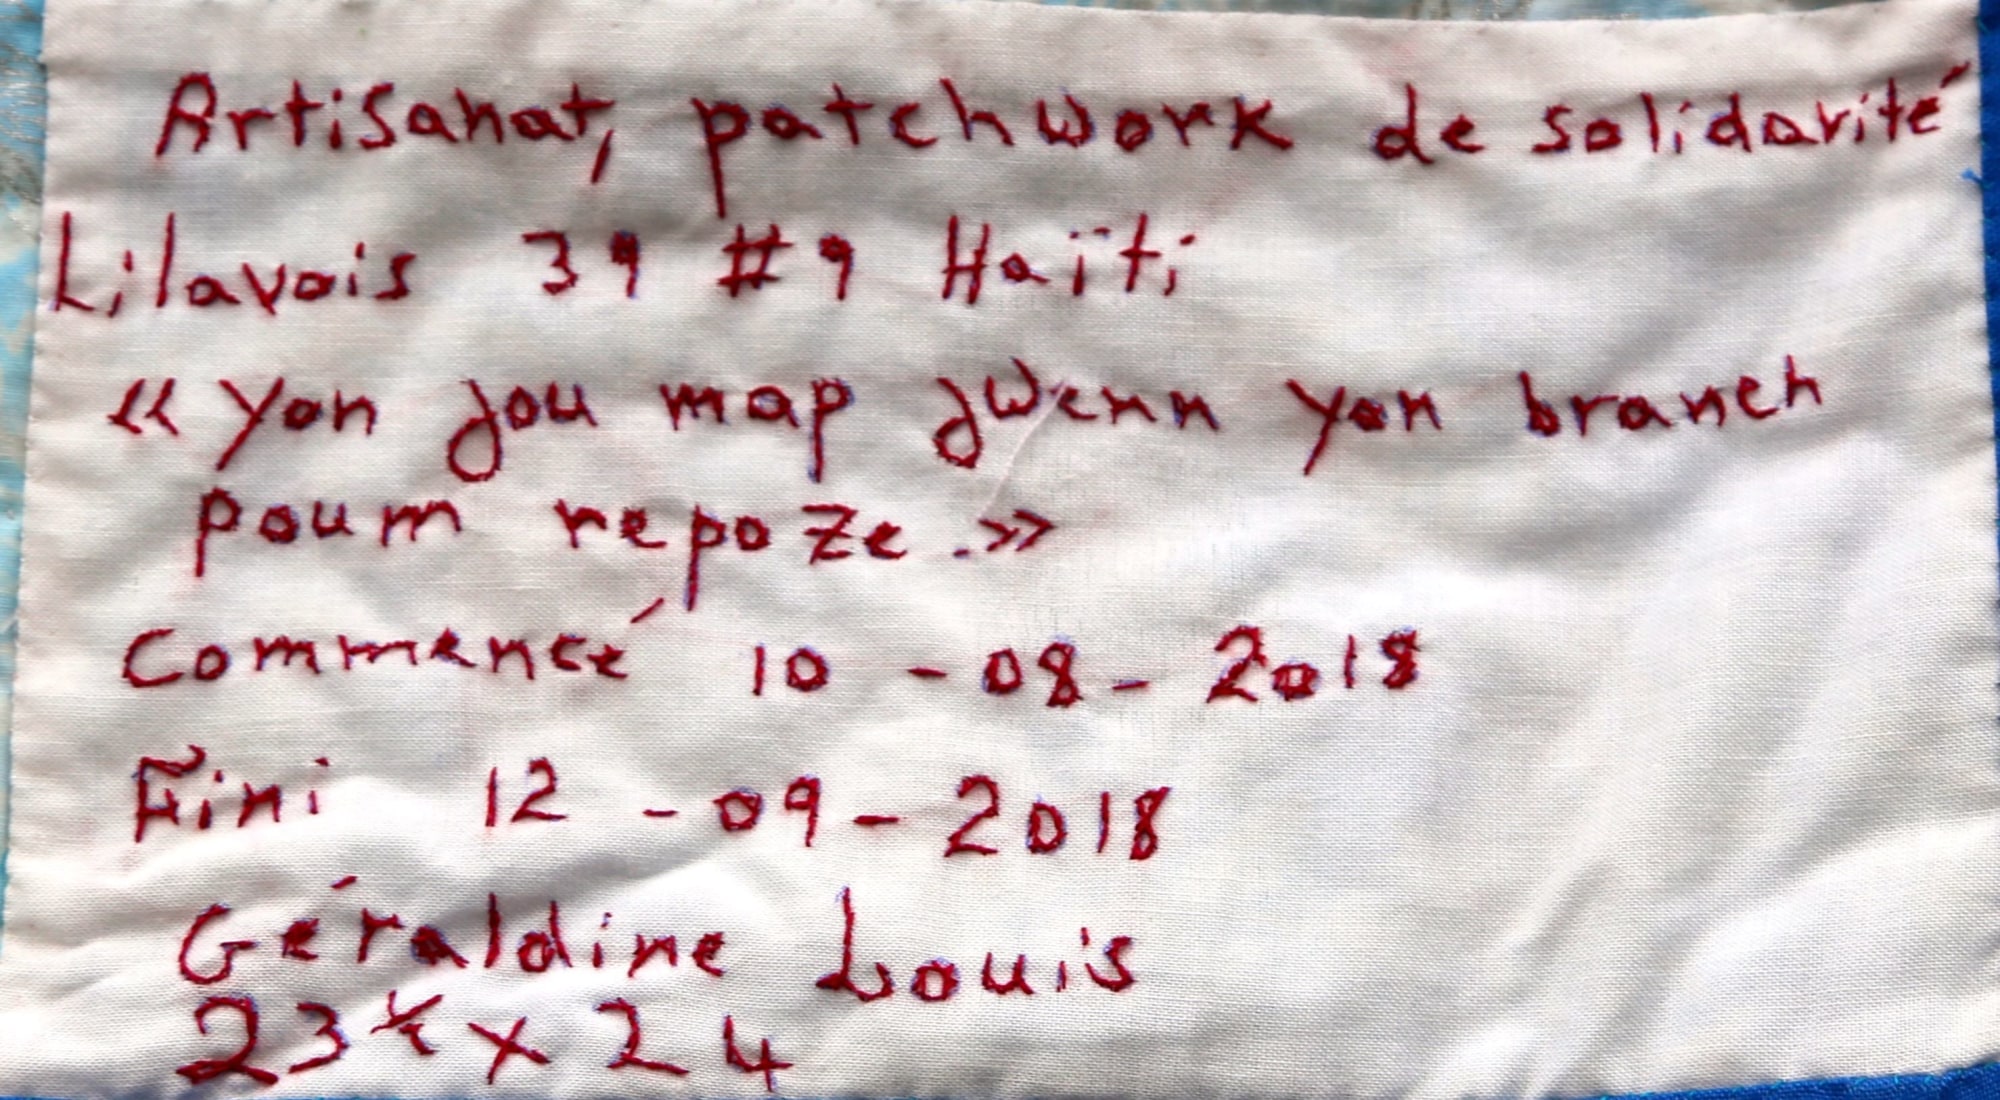 Artisanat, patchwork de solidarité
Lilavois 39 #9 Haïti
« Yon jou map jwenn yon branch
poum repoze .»
Commencé 10 - 08 - 2018
Fini 12 - 09 - 2018
Géraldine Louis
23 ½ x 24